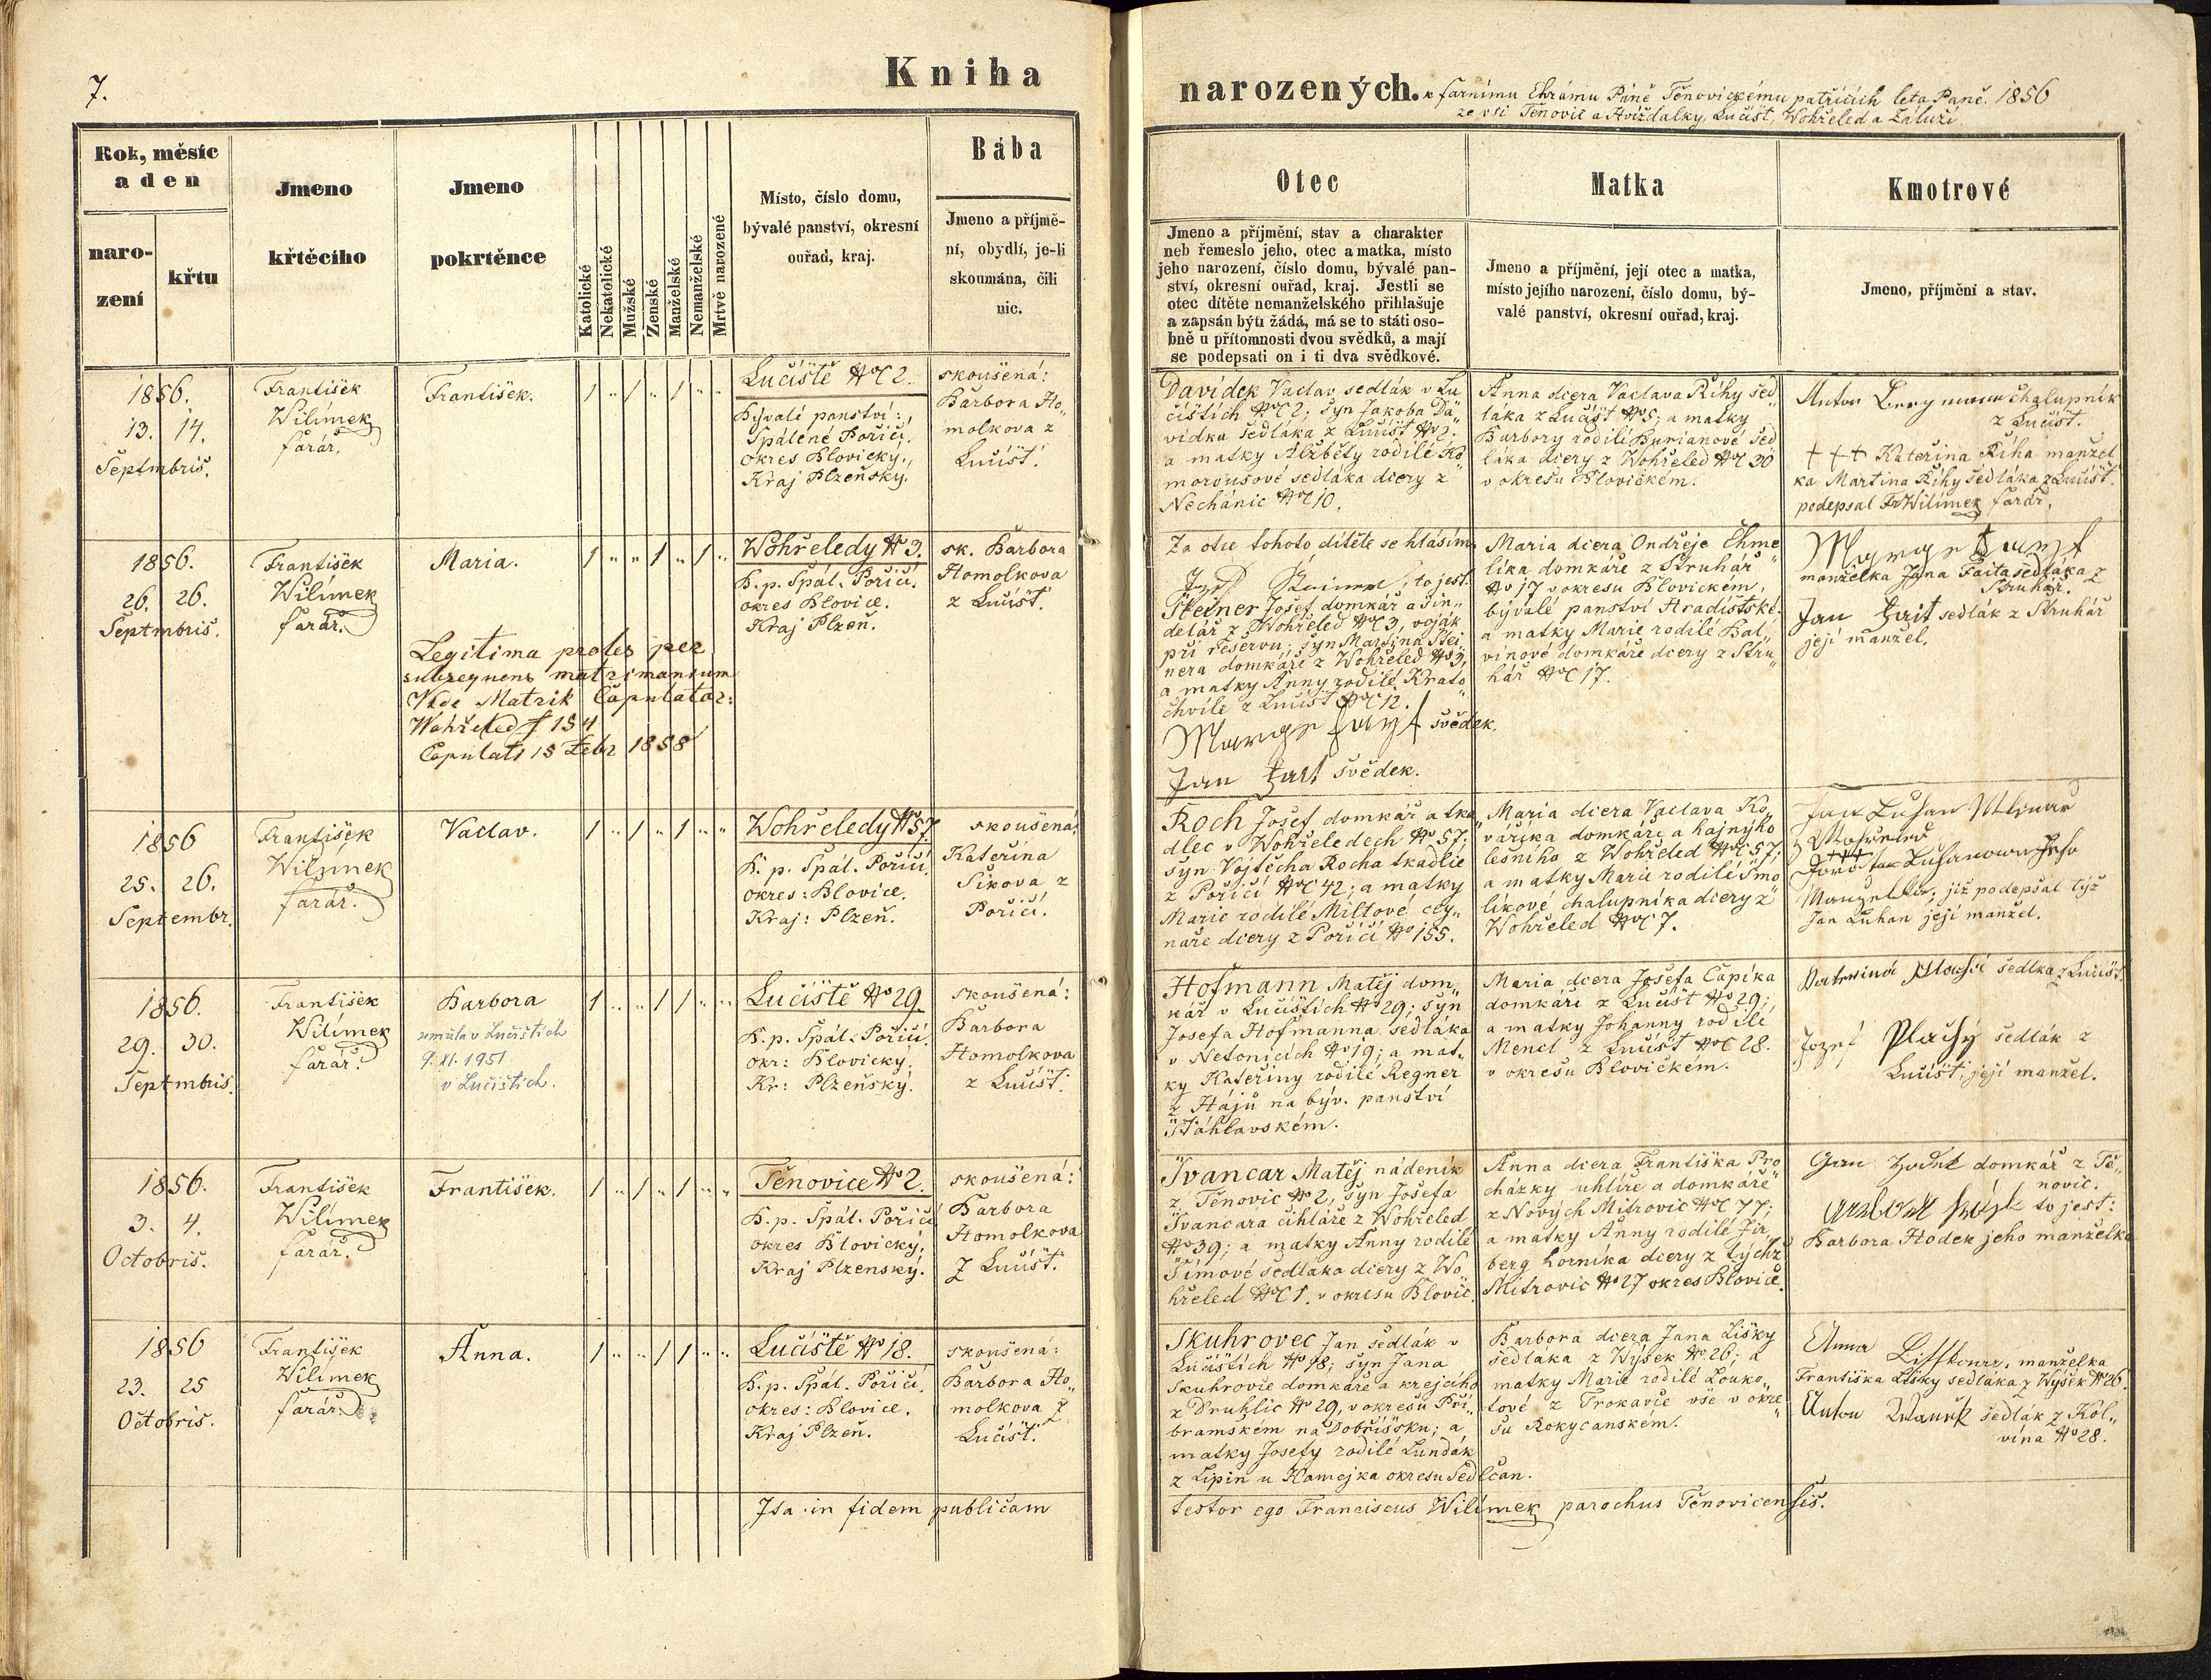 7.
Kniha
narozených. k farnímu Chrámu Páně Těnovickému patřících léta Páně. 1856
ze vsi Těnovic a Hvíždalky, Lučišť, Wohřeled a Záluží
Rok, měsíc
a den
naro-
zení
křtu
Jmeno
křtěcího
Jmeno
pokrtěnce
Katolické
Nekatolické
Mužské
Zenské
Manželské
Nemanželské
Mrtvě narozené
Místo, číslo domu,
bývalé panství, okresní
ouřad, kraj.
Bába
Jmeno a příjmě-
ní, obydlí, je-li
skoumána, čili
nic.
Otec
Jmeno a příjmění, stav a charakter
neb řemeslo jeho, otec a matka, místo
jeho narození, číslo domu, bývalé pan-
ství, okresní ouřad, kraj. Jestli se
otec dítěte nemanželského přihlašuje
a zapsán býti žádá, má se to státi oso-
bně u přítomnosti dvou svědků, a mají
se podepsati on i ti dva svědkové.
Matka
Jmeno a příjmění, její otec a matka,
místo jejího narození, číslo domu, bý-
valé panství, okresní ouřad, kraj.
Kmotrové
Jmeno, příjmění a stav.
1856.
13. 14.
Septmbris.
František
Wilímek
farář.
František.
1 „ 1 „ 1 „ „
Lučiště No C 2.
Bývalé panství:
Spálené Poříčí,
okres Blovický,
Kraj Plzeňský.
skoušená:
Barbora Ho„
molkova z
Lučišť.
Davídek Vaclav sedlák v Lu
čištích No C 2; syn Jakoba Da„
vídka sedláka z Lučišť No 2.
a matky Alžběty rodilé Ko„
morousové sedláka dcery z
Nechánic No C 10.
Anna dcera Vaclava Říhy sed„
láka z Lučišť No 5; a matky
Barbory rodilé Burianové sed
láka dcery z Wohřeled No C 30
v okresu Blovickém.
Anton Bergmann chalupník
z Lučišť.
+++ Kateřina Říha manžel
ka Martina Říhy sedláka z Lučišť.
podepsal Fr Wilímek farář.
1856.
26. 26.
Septmbris.
František
Wilímek
farář.
Maria.
1 „ „ 1 „ 1 „
Legitima proles per
subsequens matrimonium
Vide Matrik Copulator:
Wohřeled f 154
Copulati 15 Febr 1858
Wohřeledy No 3.
B. p. Spál. Poříčí.
okres Blovice.
Kraj Plzeň.
sk. Barbora
Homolkova
z Lučišť.
Za otce tohoto dítěte se hlásím
to jest:
Šteiner Josef, domkář a šin„
delář z Wohřeled No C 3, voják
při reservu; syn Martina Štei
nera domkáře z Wohřeled No 3,
a matky Anny rodilé Krato„
chvíle z Lučišť No C 12.
svědek.
Jan Fait svědek.
Maria dcera Ondřeje Chme
líka domkáře z Struhář
No 17 v okresu Blovickém,
bývalé panství Hradišťské.
a matky Marie rodilé Bal„
vínové domkáře dcery z Stru„
hář No C 17.
manželka Jana Faita sedláka z
Struhář.
Jan Fait sedlák z Struhář
její manžel.
1856
25. 26.
Septembr.
František
Wilímek
farář.
Vaclav.
1 „ 1 „ 1 „ „
Wohřeledy No 57
B. p. Spál. Poříčí.
okres: Blovice.
Kraj: Plzeň.
skoušená:
Kateřina
Šíkova z
Poříčí.
Roch Josef domkář a tka„
dlec v Wohřeledech No 57;
syn Vojtěcha Rocha tkadlce
z Poříčí No C 42; a matky
Marie rodilé Miltové cey„
náře dcery z Poříčí No 155.
Maria dcera Vaclava Ko„
váříka domkáře a hajnýho
lesního z Wohřeled No C 57;
a matky Marie rodilé Smo
líkové chalupníka dcery z
Wohřeled No C 7.
Jan Luhan Mlinař
z Wohřeled
+++
Luhanowa Jeho
Manzelka, již podepsal týž
Jan Luhan její manžel.
1856.
29. 30.
Septmbris.
František
Wilímek
farář.
Barbora
zemřela v Lučištích
9. XI. 1951
v Lučištích.
1 „ „ 1 1 „ „
Lučiště No 29.
B. p. Spál. Poříčí.
okr: Blovický;
Kr: Plzeňský.
skoušená:
Barbora
Homolkova
z Lučišť.
Hofmann Matěj dom„
kář v Lučištích No 29; syn
Josefa Hofmanna sedláka
v Netonicích No 19; a mat„
ky Kateřiny rodilé Regner
z Hájů na býv. panství
Šťáhlavském.
Maria dcera Josefa Čapíka
domkáře z Lučišť No 29;
a matky Johanny rodilé
Mencl z Lučišť No C 28.
v okresu Blovickém.
Katerina Plachi sedlka z Lučišť.
Jozef Plachý sedlák z
Lučišť, její manžel.
1856.
3. 4.
Octobris.
František
Wilímek
farář.
František.
1 „ 1 „ 1 „ „
Těnovice No 2.
B. p. Spál. Poříčí
okres Blovický.
Kraj Plzenský.
skoušená:
Barbora
Homolkova
z Lučišť.
Švancar Matěj nádeník
z Těnovic No 2, syn Josefa
Švancara cihláře z Wohřeled
No 39; a matky Anny rodilé
Šímové sedláka dcery z Wo
hřeled No C 1. v okresu Blovic.
Anna dcera Františka Pro
cházky uhlíře a domkáře
z Nových Mitrovic No C 77;
a matky Anny rodilé Jir
berg horníka dcery z týchž
Mitrovic No 27 okres Blovice.
domkář z Tě„
novic.
to jest:
Barbora Hodek jeho manželka
1856
23. 25
Octobris.
František
Wilímek
farář.
Anna.
1 „ „ 1 1 „ „
Lučiště No 18.
B. p. Spál. Poříčí.
okres: Blovice.
Kraj Plzeň.
skoušená:
Barbora Ho„
molkova z
Lučišť.
Skuhrovec Jan sedlák v
Lučištích No 18; syn Jana
Skuhrovce domkáře a krejcího
z Druhlic No 29, v okresu Pří„
bramském na Dobříšsku; a
matky Josefy rodilé Lundák
z Lipin u Kamejka okresu Sedlčan.
Barbora dcera Jana Lišky
sedláka z Wýsek No 26; a
matky Marie rodilé Louko„
tové z Trokavce vše v okre„
su Rokycanském.
Anna manželka
Františka Lišky sedláka z Wýsek No 26.
Anton sedlák z Kol„
vína No 28.
Ita in fidem publicam
testor ego Franciscus Wilímek parochus Těnovicensis.